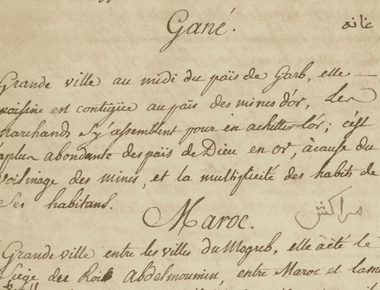 Gané.
غانه
Grande ville au midi du païs de Garb, elle
voisine est contigüe au païs des mines d'or, Les
Marchands s'y assemblent pour en achetter l'or; c'est
la plus abondante des païs de Dieu en or, acause du
voisinage des mines, et la multiplicité des habits de
ses habitans.
Maroc.
مراكش
Grande ville entre les villes du Mogreb, elle a été le
Siége des Rois Abdelmoumin, entre Maroc et la